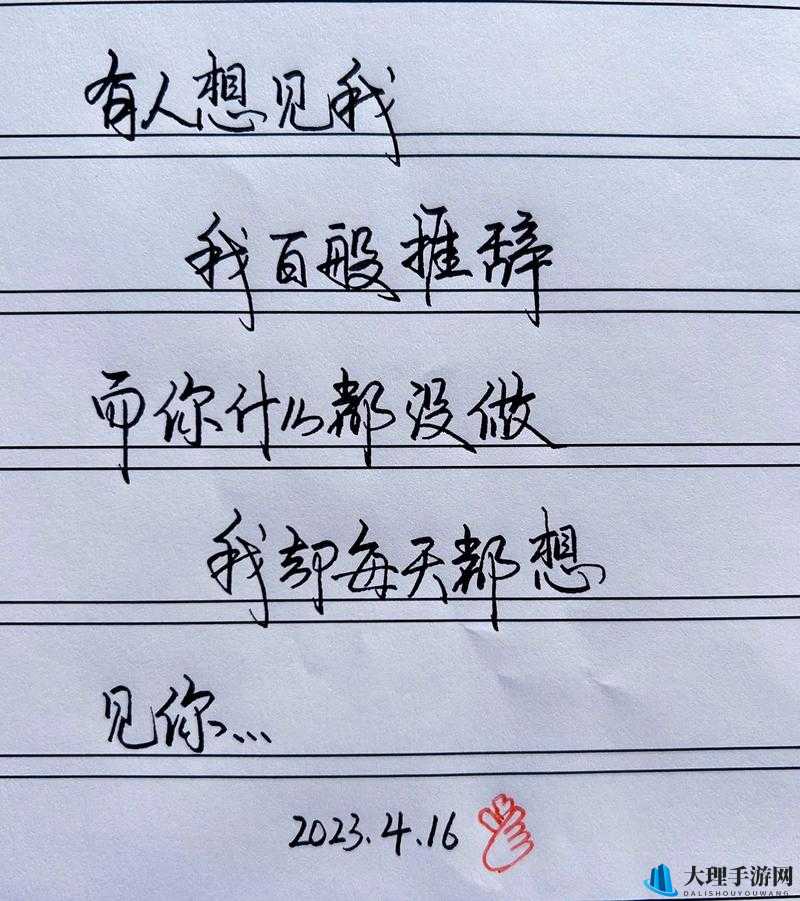 有人想见我
我百般推辞
而你什么都没做
我却每天都想
见你...
2023.4.16
大理手游网
DALISHOUYOUWANG